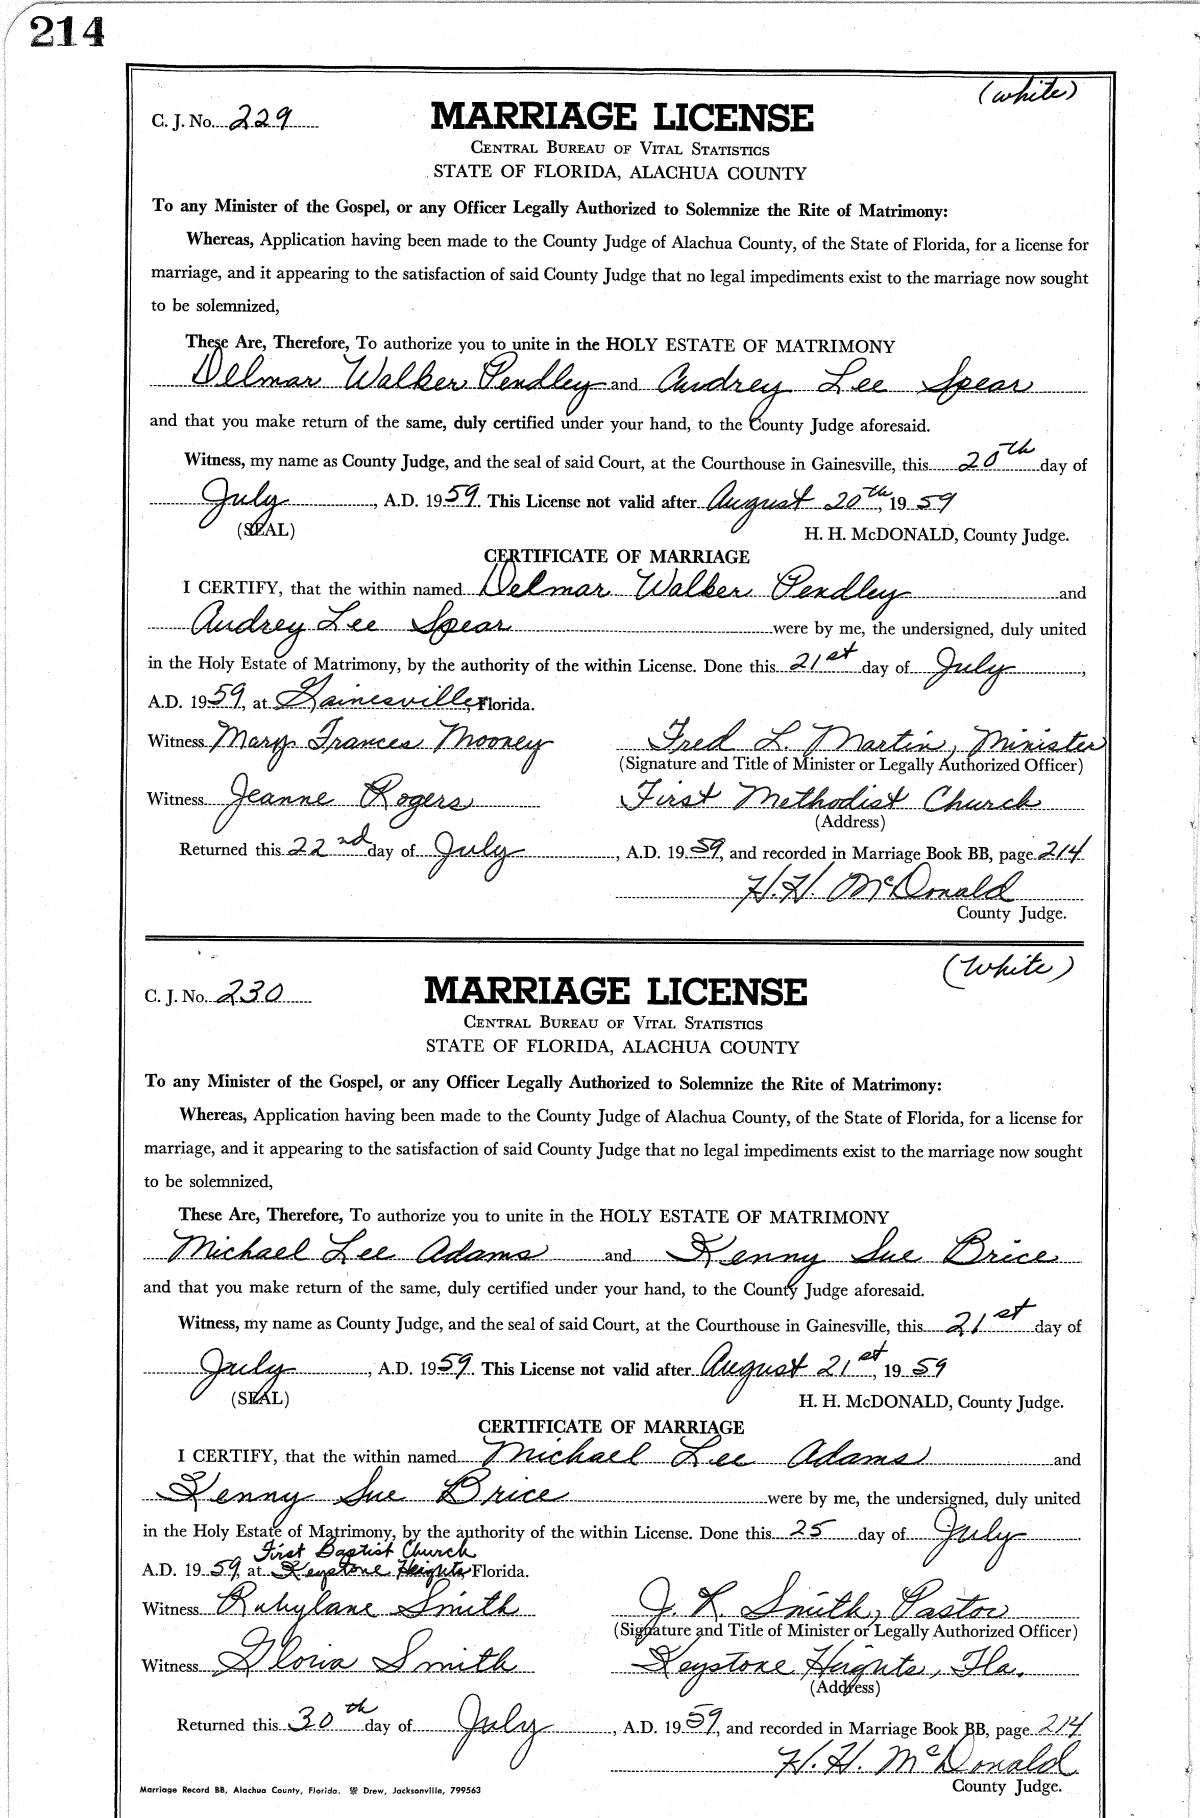 214
(white)
C. J. No. 229
MARRIAGE LICENSE
CENTRAL BUREAU OF VITAL STATISTICS
STATE OF FLORIDA, ALACHUA COUNTY
To any Minister of the Gospel, or any Officer Legally Authorized to Solemnize the Rite of Matrimony:
Whereas, Application having been made to the County Judge of Alachua County, of the State of Florida, for a license for
marriage, and it appearing to the satisfaction of said County Judge that no legal impediments exist to the marriage now sought
to be solemnized,
These Are, Therefore, To authorize you to unite in the HOLY ESTATE OF MATRIMONY
Delmar Walker Pendley and Audrey Lee Spear
and that you make return of the same, duly certified under your hand, to the County Judge aforesaid.
Witness, my name as County Judge, and the seal of said Court, at the Courthouse in Gainesville, this 20th day of
July, A.D. 1959. This License not valid after August 20th, 1959
(SEAL) H. H. McDONALD, County Judge.
CERTIFICATE OF MARRIAGE
I CERTIFY, that the within named Delmar Walker Pendley and
Audrey Lee Spear were by me, the undersigned, duly united
in the Holy Estate of Matrimony, by the authority of the within License. Done this 21st day of July,
A.D. 1959, at Gainesville, Florida.
Witness Mary Frances Mooney Fred L. Martin, Minister
(Signature and Title of Minister or Legally Authorized Officer)
Witness Jeanne Rogers First Methodist Church
(Address)
Returned this 22nd day of July, A.D. 1959, and recorded in Marriage Book BB, page 214
H. H. McDonald
County Judge.
(White)
C. J. No. 230
MARRIAGE LICENSE
CENTRAL BUREAU OF VITAL STATISTICS
STATE OF FLORIDA, ALACHUA COUNTY
To any Minister of the Gospel, or any Officer Legally Authorized to Solemnize the Rite of Matrimony:
Whereas, Application having been made to the County Judge of Alachua County, of the State of Florida, for a license for
marriage, and it appearing to the satisfaction of said County Judge that no legal impediments exist to the marriage now sought
to be solemnized,
These Are, Therefore, To authorize you to unite in the HOLY ESTATE OF MATRIMONY
Michael Lee Adams and Kenny Sue Brice
and that you make return of the same, duly certified under your hand, to the County Judge aforesaid.
Witness, my name as County Judge, and the seal of said Court, at the Courthouse in Gainesville, this 21st day of
July, A.D. 1959. This License not valid after August 21st, 1959
(SEAL) H. H. McDONALD, County Judge.
CERTIFICATE OF MARRIAGE
I CERTIFY, that the within named Michael Lee Adams and
Kenny Sue Brice were by me, the undersigned, duly united
in the Holy Estate of Matrimony, by the authority of the within License. Done this 25 day of July
First Baptist Church
A.D. 1959, at Keystone Heights, Florida.
Witness Rubylane Smith J. R. Smith, Pastor
(Signature and Title of Minister or Legally Authorized Officer)
Witness Gloria Smith Keystone Heights, Fla.
(Address)
Returned this 30th day of July, A.D. 1959, and recorded in Marriage Book BB, page 214
H. H. McDonald
County Judge.
Marriage Record BB, Alachua County, Florida. Drew, Jacksonville, 799563